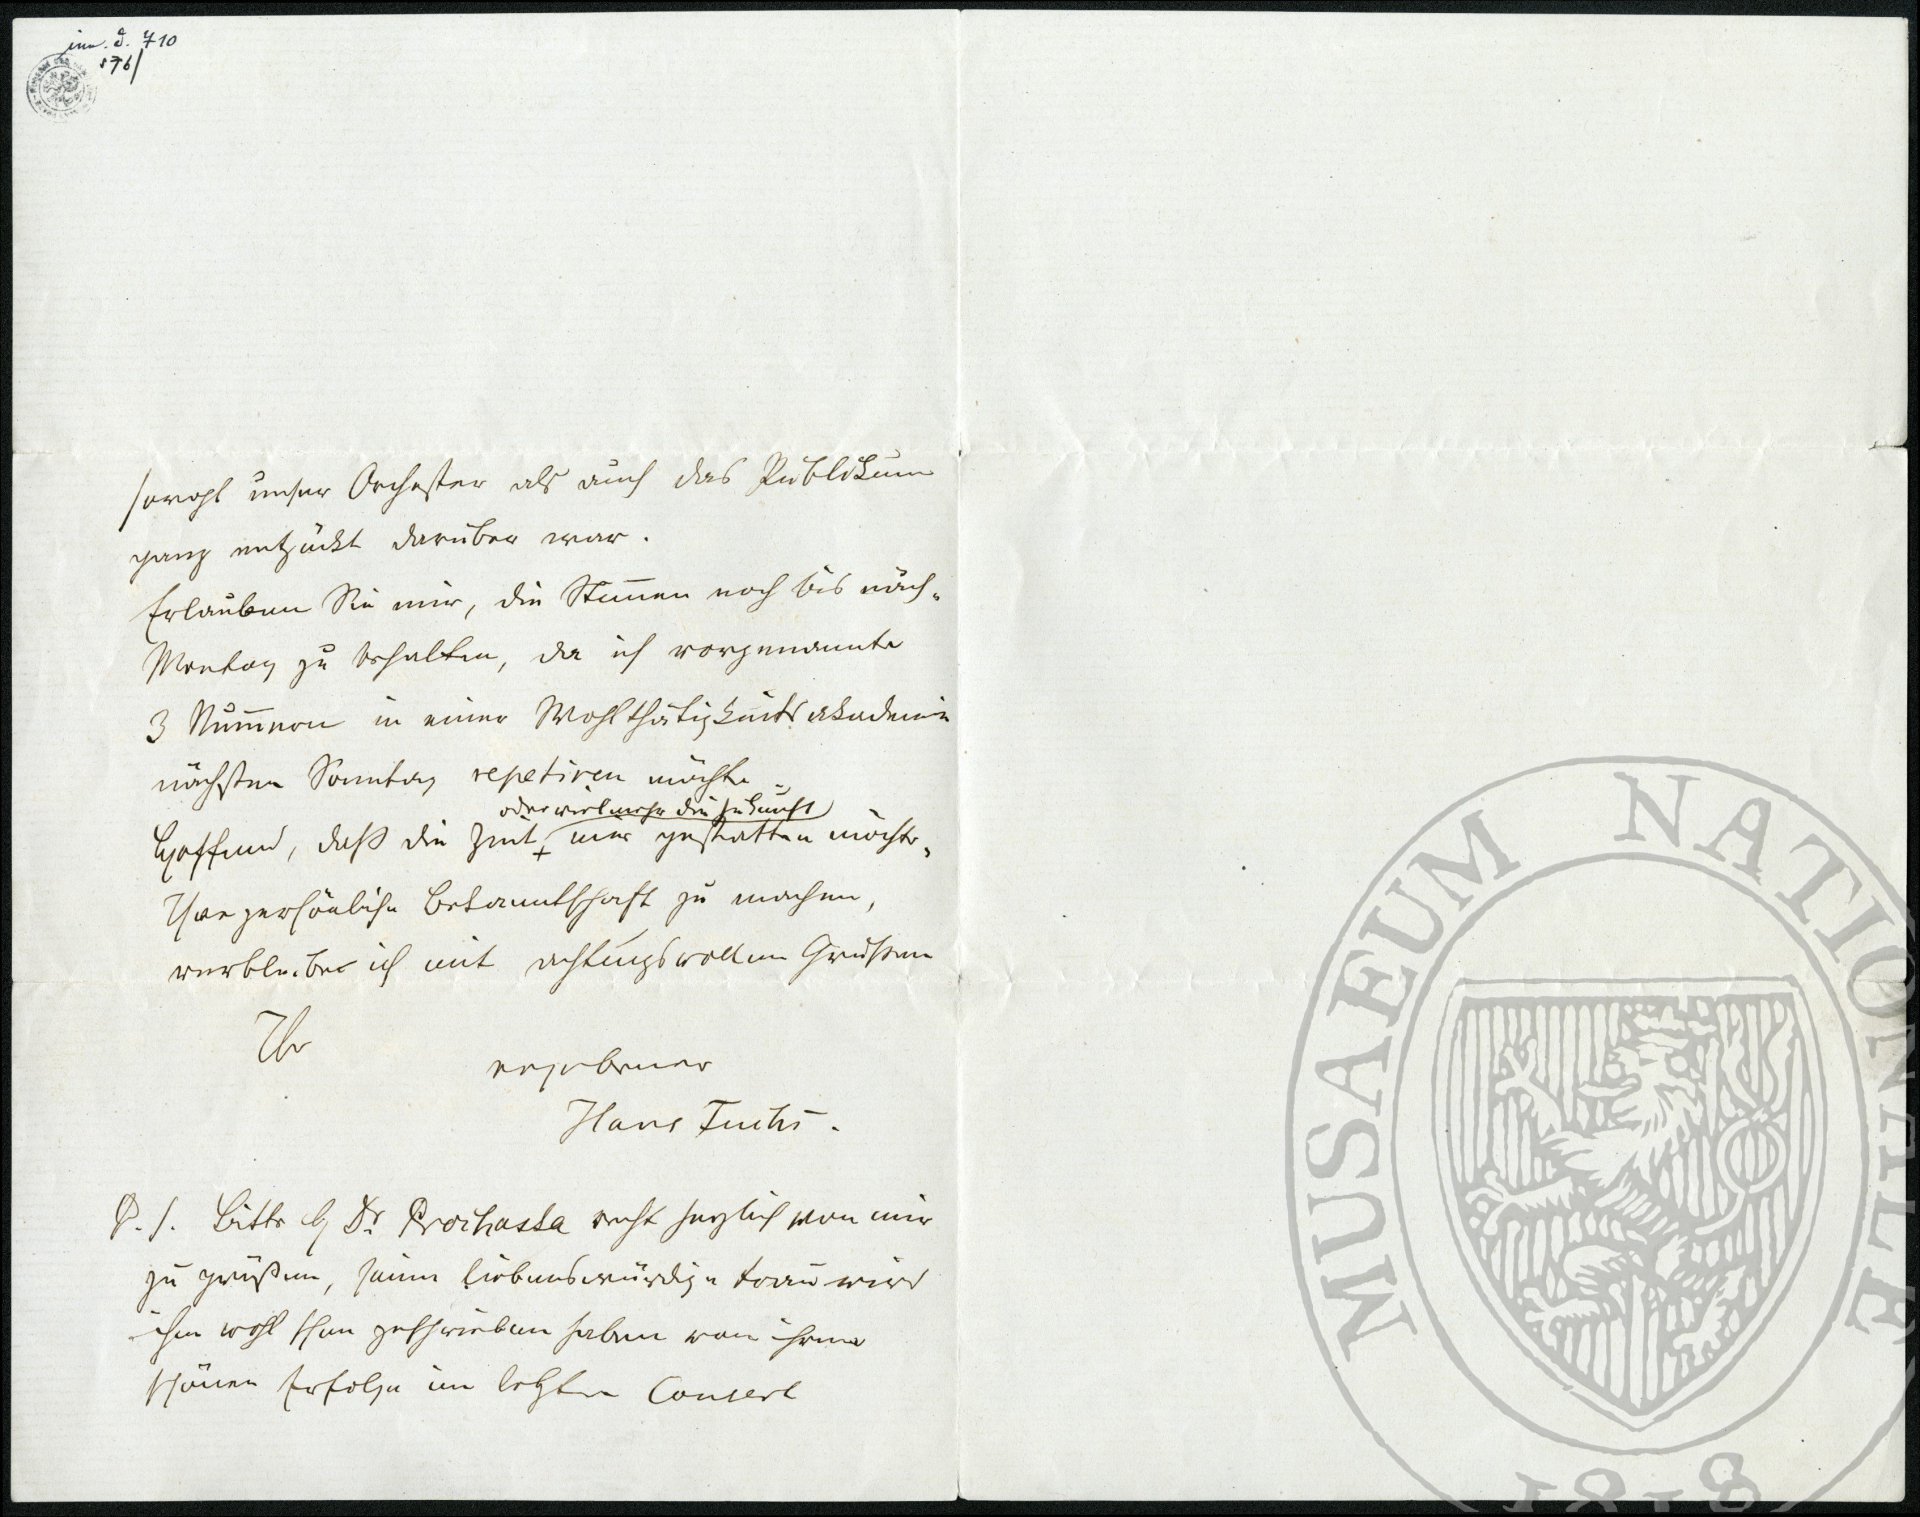 inv. č. 710
176/
sowohl unser Orchester als auch das Publikum
ganz entzückt darüber war.
Erlauben Sie mir, die Stim̅en noch bis näch-
Montag zu behalten, da ich vorgenannte
3 Num̅ern in einer Wohlthätigkeitsakademie
nächsten Sonntag repetiren möchte
oder vielmehr die Zukunft
Hoffend, daß die Zeit + mir gestatten möchte,
Ihre persönliche Bekanntschaft zu machen,
verbleibe ich mit achtungsvollen Grüßen
Ihr
ergebener
Hans Fuchs.
P. S. Bitte H Dr Prochaska recht herzlich von mir
zu grüßen, seine liebenswürdige Frau wird
ihm wohl schon geschrieben haben von ihrem
schönen Erfolge im letzten Concert
MUSAEUM NATIONALE
1818